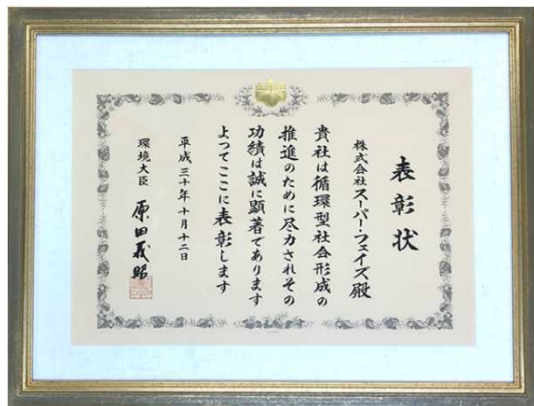 表彰状
株式会社スーパー・フェイズ殿
貴社は循環型社会形成の
推進のために尽力されその
功績は誠に顕著であります
よってここに表彰します
平成三十年十月十二日
環境大臣 原田義昭